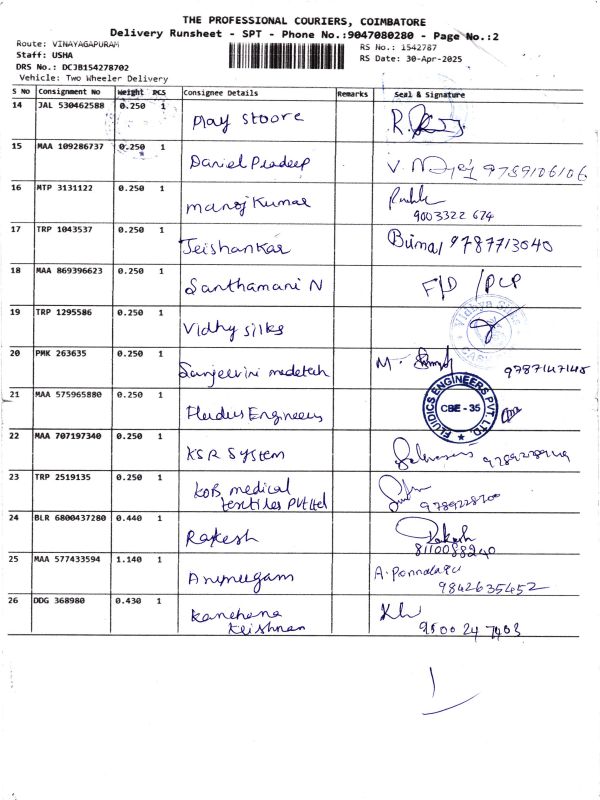 THE PROFESSIONAL COURIERS, COIMBATORE
Delivery Runsheet - SPT - Phone No.:9047080280 - Page No.:2
Route: VINAYAGAPURAM
Staff: USHA
DRS No.: DCJB154278702
Vehicle: Two Wheeler Delivery
RS No.: 1542787
RS Date: 30-Apr-2025
S No Consignment No Weight PCS Consignee Details Remarks Seal & Signature
14 JAL 530462588 0.250 1 Play Stoore R.
15 MAA 109286737 0.250 1 Daniel Pradeep V. 9789106106
16 MTP 3131122 0.250 1 Manoj Kumar
9003322 674
17 TRP 1043537 0.250 1 Jeishankar Bimal 9787713040
18 MAA 869396623 0.250 1 Santhamani N F/D /PCP
19 TRP 1295586 0.250 1 Vidhy silks
Vidhya Silks
20 PMK 263635 0.250 1 Sanjeevini medetech M. 9787147145
21 MAA 575965880 0.250 1 Fludus Engineers
FLUIDICS ENGINEERS PVT. LTD
CBE - 35
22 MAA 707197340 0.250 1 KSR System
23 TRP 2519135 0.250 1 KOB medical
textiles Pvt Ltd 9789228700
24 BLR 6800437280 0.440 1 Rakesh Rakesh
8110088240
25 MAA 577433594 1.140 1 Arumugam A.Ponnalagu
9842635452
26 DDG 368980 0.430 1 Kanchana
Krishnan 9500247403